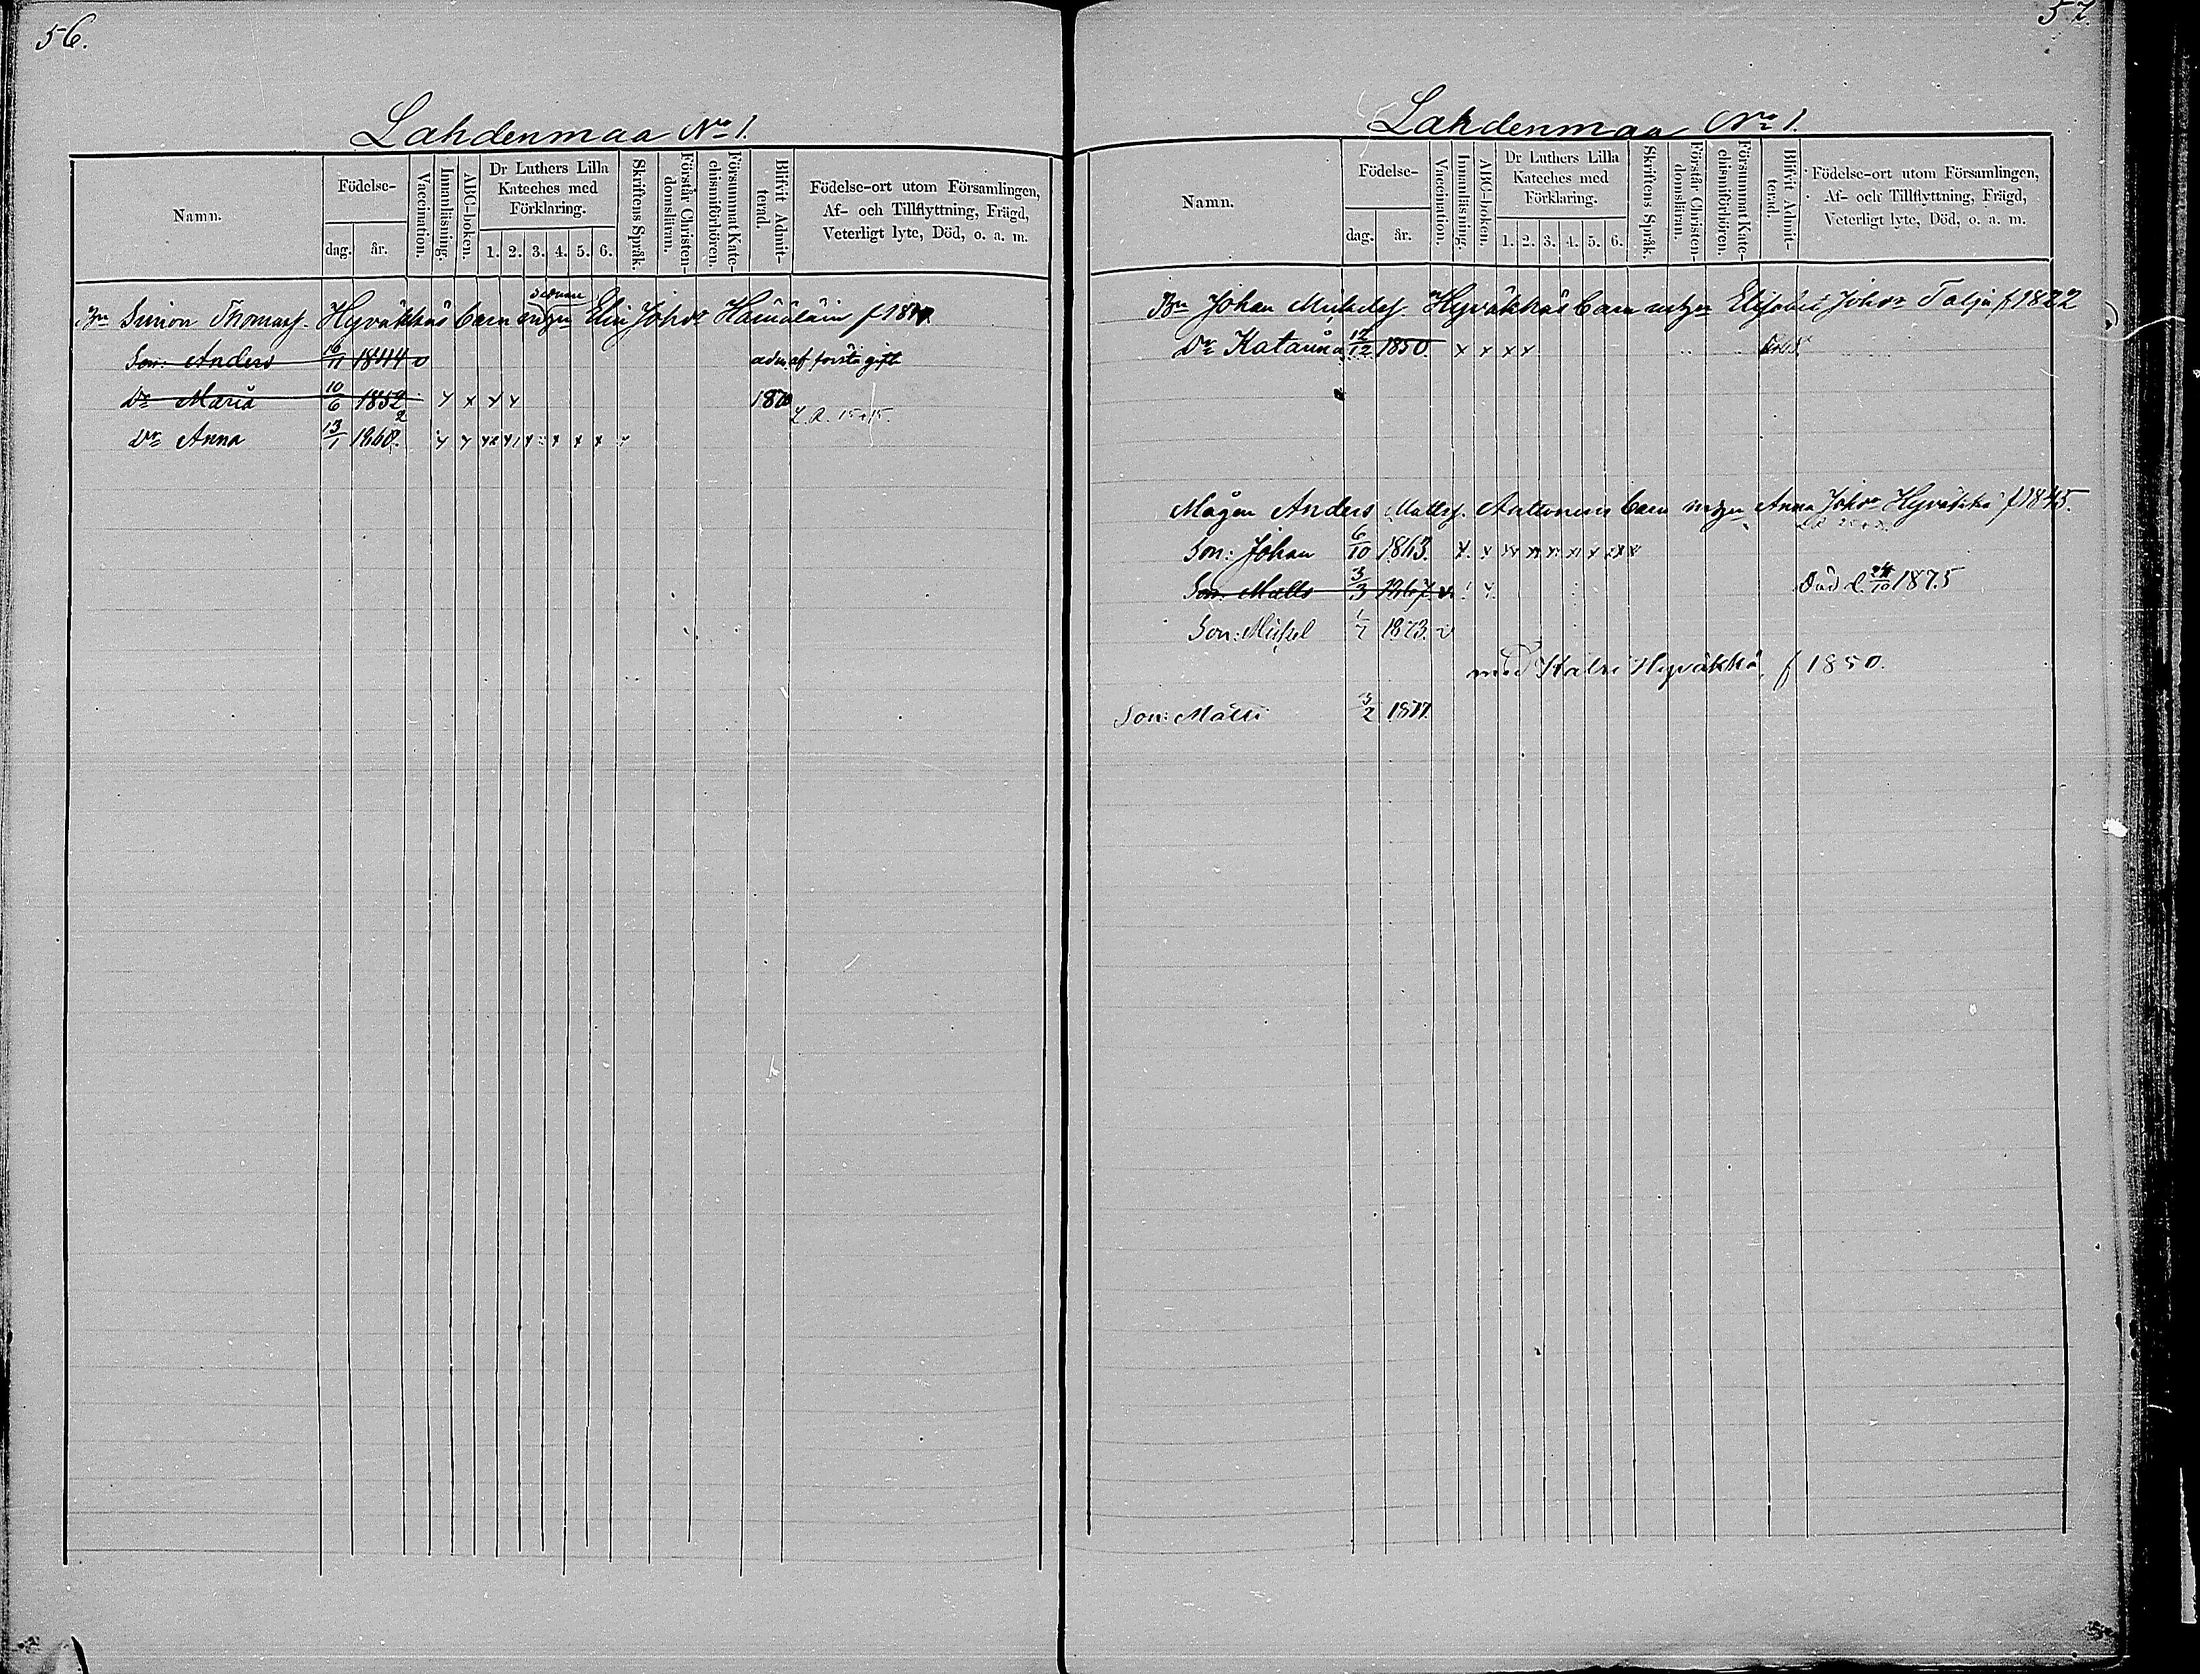 56.
Lahdenmaa No 1.
Namn.
Födelse-
dag. år.
Vaccination.
Innanläsning.
ABC-boken.
Dr Luthers Lilla Kateches med Förklaring.
1. 2. 3. 4. 5. 6.
Skriftens Språk.
Förstår Christendomsläran.
Försummat Katechismiförhören.
Blifvit Admitterad.
Födelse-ort utom Församlingen, Af- och Tillflyttning, Frägd, Veterligt lyte, Död, o. a. m.
Bn Simon Thomass. Hyväkkäs barn Elin Johsdr Hämäläin f
Son: Anders 16/11 1844 adm. af första gift
Dr Maria 10/6 1852 x x x x 1870
Dr Anna 13/1 x x x x x x x x
57.
Lahdenmaa No 1.
Namn.
Födelse-
dag. år.
Vaccination.
Innanläsning.
ABC-boken.
Dr Luthers Lilla Kateches med Förklaring.
1. 2. 3. 4. 5. 6.
Skriftens Språk.
Förstår Christendomsläran.
Försummat Katechismiförhören.
Blifvit Admitterad.
Födelse-ort utom Församlingen, Af- och Tillflyttning, Frägd, Veterligt lyte, Död, o. a. m.
Bn Johan Michelss. Hyväkkäs barn Elisabet Johsdr Talja f 1822
Dr Katarina 12/12 1850 x x x x
Mågen Anders Mattss. Anttonens barn Anna Johsdr Hyväkkä f 1845.
Son: Johan 6/10 1863. x x x x x x x x
Son: Matts 3/3 1867. v. Död d. 1875
Son: Mickel 1/7 1873. v
med Katri Hyväkkä, f 1850.
Son: Matti 3/2 1877.